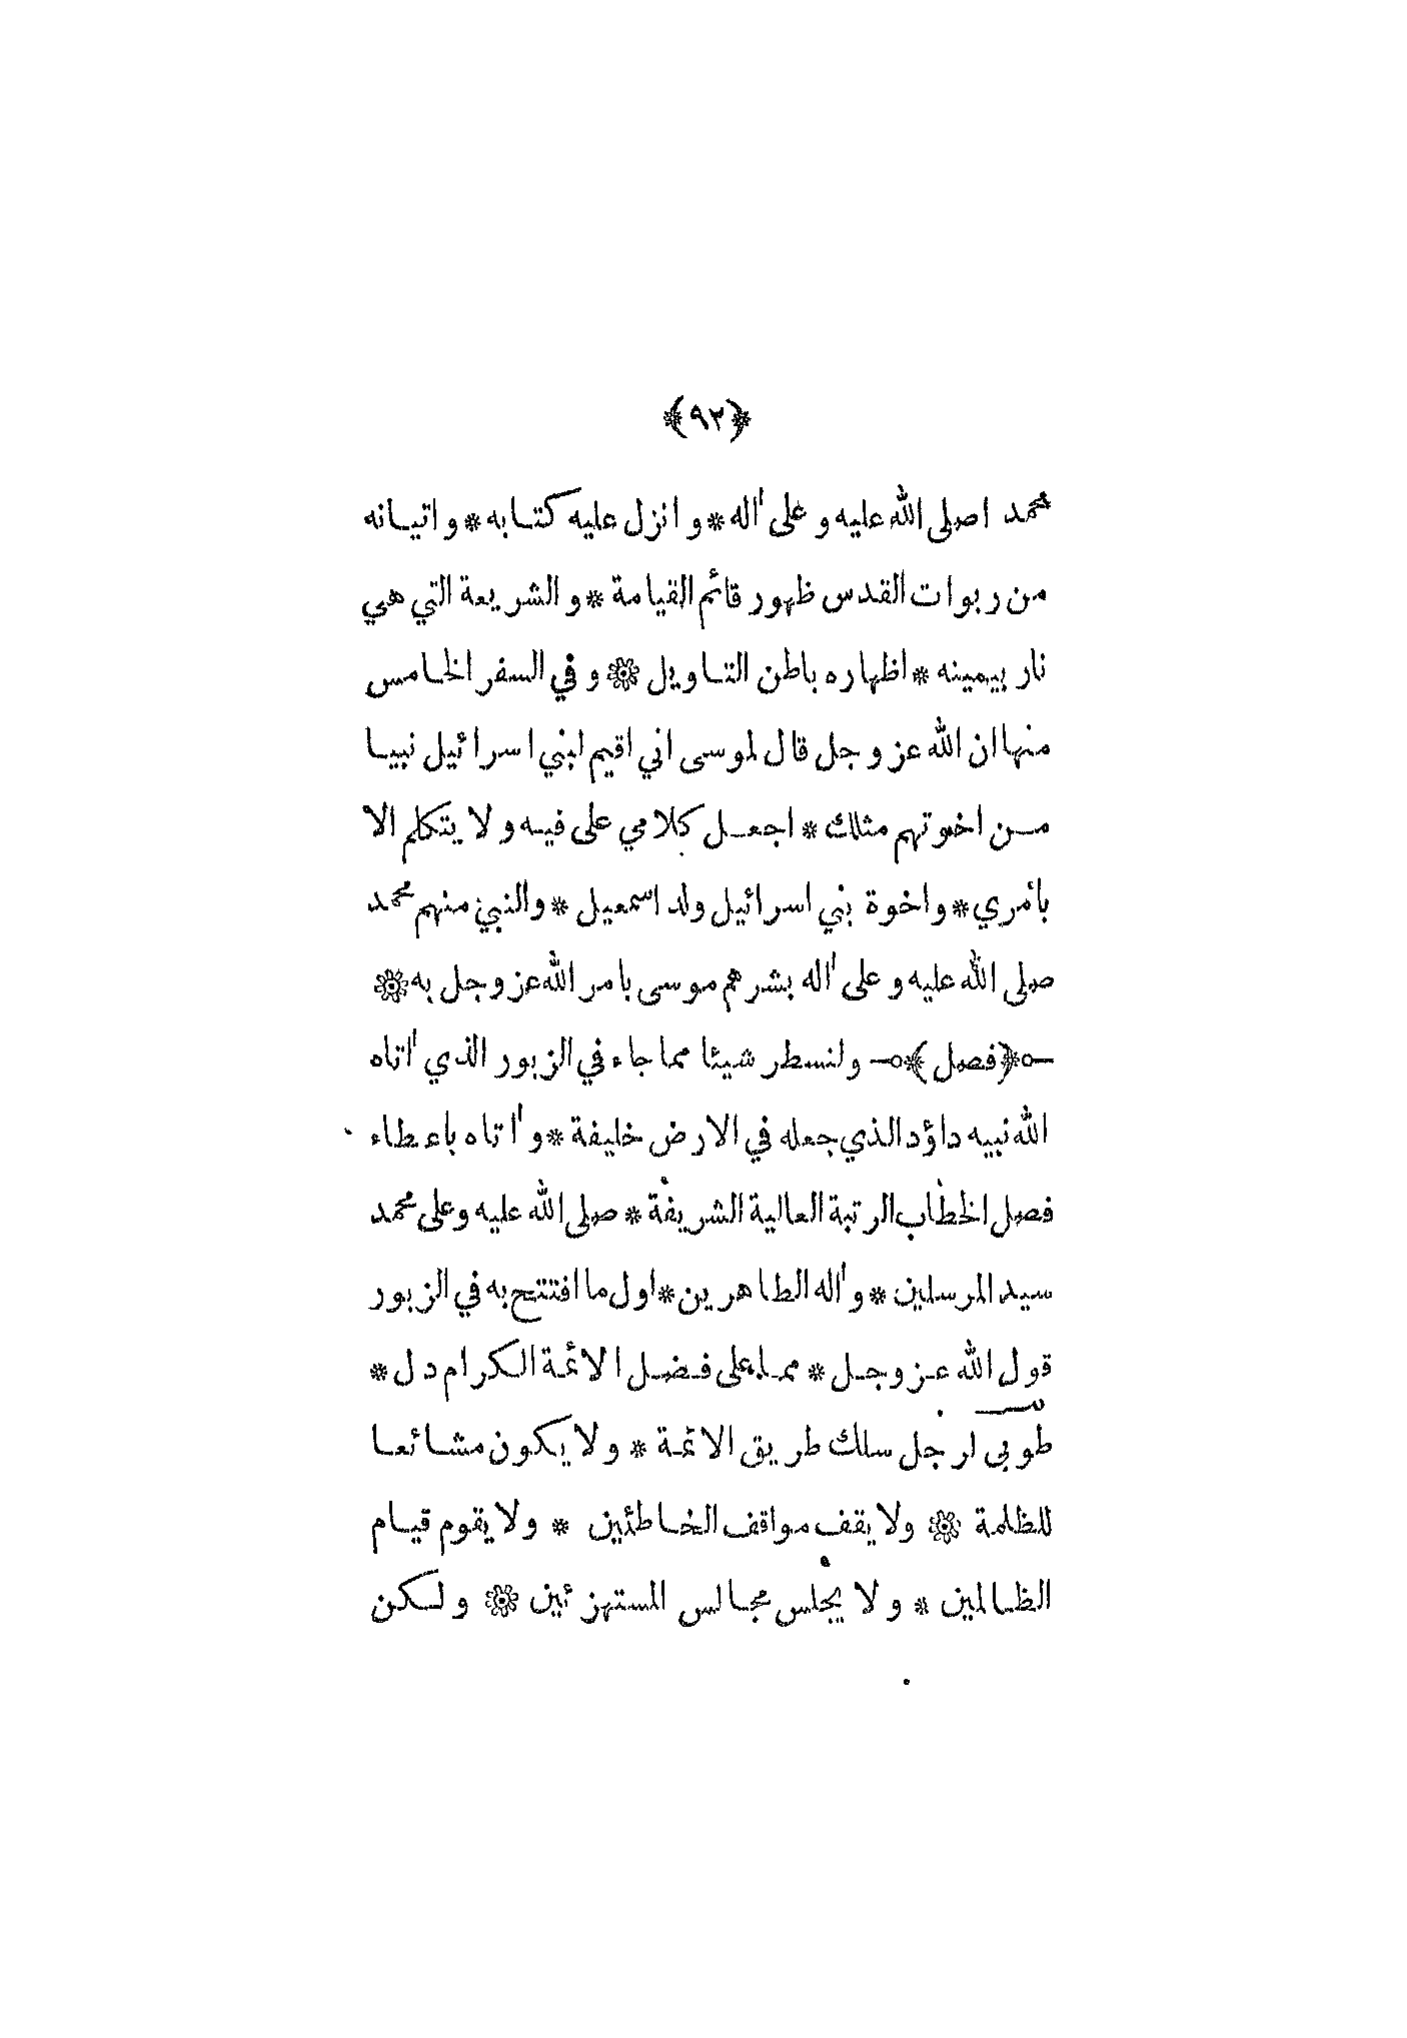 ﴿٩٢﴾
محمد اصلى الله عليه و على اٰله * و انزل عليه كتابه * و اتيانه
من ربوات القدس ظهور قائم القيامة * و الشريعة التي هي
نار بيمينه * اظهاره باطن التاويل ۞ و في السفر الخامس
منها ان الله عز و جل قال لموسى اني اقيم لبني اسرائيل نبيا
من اخوتهم مثلك * اجعل كلامي على فيه و لا يتكلم الا
بأمري * و اخوة بني اسرائيل ولد اسمعيل * والنبي منهم محمد
صلى الله عليه و على اٰله بشرهم موسى بامر الله عز و جل به ۞
﴿فصل﴾ و لنسطر شيئا مما جاء في الزبور الذي اٰتاه
الله نبيه داؤد الذي جعله في الارض خليفة * و اٰتاه باعطاء
فصل الخطاب الرتبة العالية الشريفة * صلى الله عليه وعلى محمد
سيد المرسلين * و اٰله الطاهرين * اول ما افتتح به في الزبور
قول الله عز و جل * مما على فضل الائمة الكرام دل *
طوبى لرجل سلك طريق الائمة * و لا يكون مشائعا
للظلمة ۞ ولا يقف مواقف الخاطئين * ولا يقوم قيام
الظالمين * و لا يجلس مجالس المستهزئين ۞ و لكن